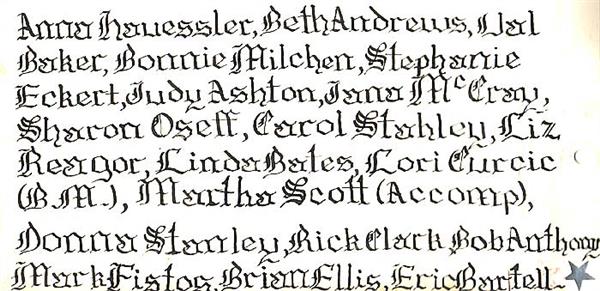 Anna Hauessler, Beth Andrews, Val
Baker, Bonnie Milchen, Stephanie
Eckert, Judy Ashton, Jana McCray,
Sharon Oseff, Carol Stahley, Liz
Reagor, Linda Bates, Lori Curcic
(B.M.), Martha Scott (Accomp),
Donna Stanley, Rick Clark Bob Anthony
Mark Fistos, Brian Ellis, Eric Bartell~